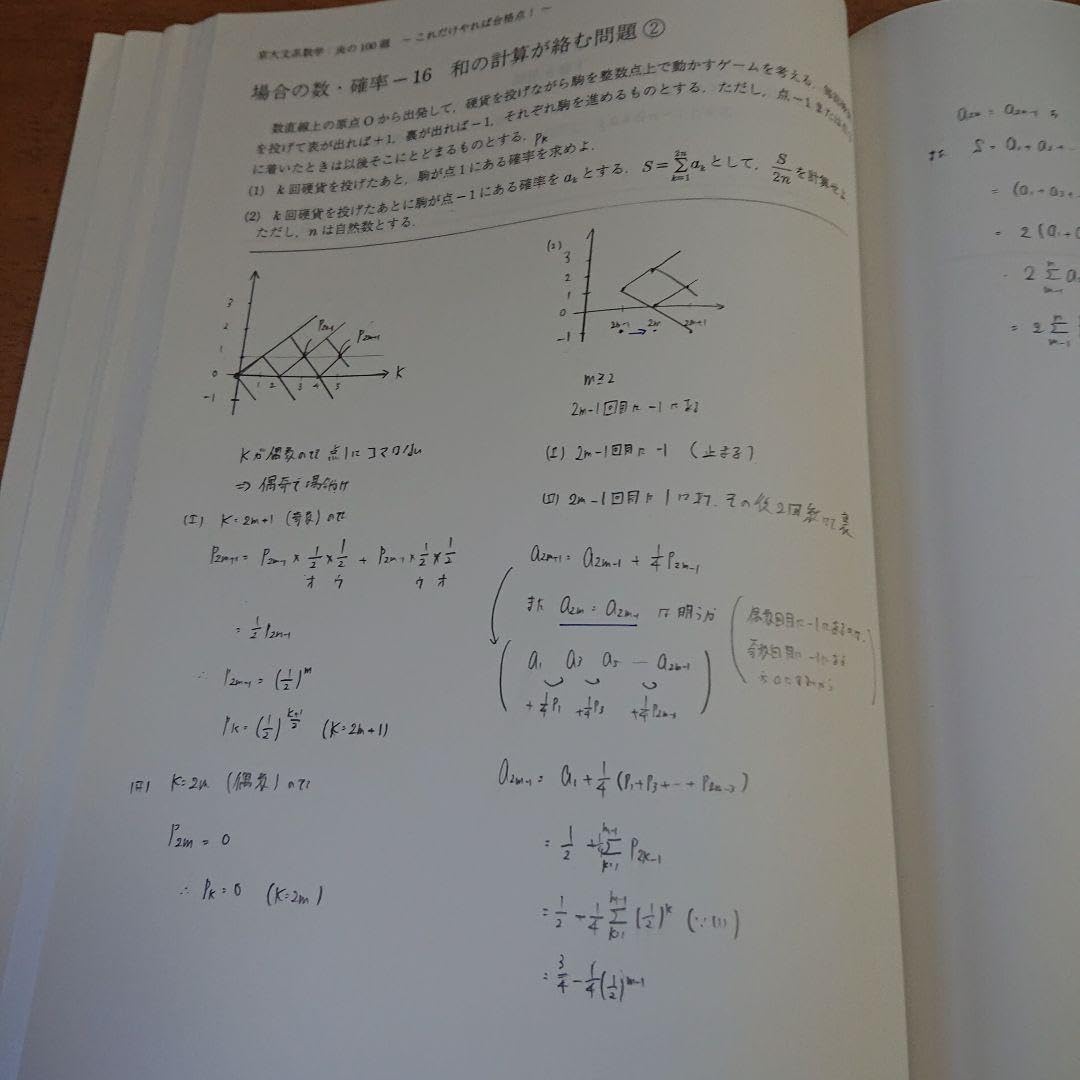 京大文系数学:炎の100題 ～これだけやれば合格点!～
場合の数・確率－16 和の計算が絡む問題②
数直線上の原点Oから出発して,硬貨を投げながら駒を整数点上で動かすゲームを考える.
を投げて表が出れば+1,裏が出れば-1,それぞれ駒を進めるものとする.ただし,点-1または
に着いたときは以後そこにとどまるものとする. Pk
(1) k回硬貨を投げたあと,駒が点1にある確率を求めよ.
(2) k回硬貨を投げたあとに駒が点-1にある確率を a_kとする. S=Σ_{k=1}^{2n} a_kとして, S/2n を計算せよ
ただし, nは自然数とする.
3
2
1
0
-1
1 2 3 4 5
K
P2m-1
P2m+1
Kが偶数のとき 点1にコマはない
⇒ 偶奇で場合分け
(I) K=2m+1 (奇数)のとき
P2m+1 = P2m-1 × 1/2 × 1/2 + P2m-1 × 1/2 × 1/2
オ ウ ウ オ
= 1/2 P2m-1
∴ P2m-1 = (1/2)^m
Pk = (1/2)^{(K+1)/2} (K=2m+1)
(II) K=2m (偶数)のとき
P2m = 0
∴ Pk=0 (K=2m)
(2)
3
2
1
0
-1
2m-1 → 2m 2m+1
m≧2
2m-1回目に -1にある
(I) 2m-1回目に -1 (止まる)
(II) 2m-1回目に1にあって,その後2回続けて裏
a2m+1 = a2m-1 + 1/4 P2m-1
また a2m = a2m-1 は明らか
(偶数回目に-1にあるのは,
奇数回目に-1にある
a1 a3 a5 … a2m-1
+1/4P1 +1/4P3 +1/4P2m-3
a2m-1 = a1 + 1/4 (P1+P3+…+P2m-3)
= 1/2 + 1/4 Σ_{k=1}^{m-1} P2k-1
= 1/2 + 1/4 Σ_{k=1}^{m-1} (1/2)^k (∵(1))
= 3/4 - 1/4 (1/2)^{m-1}
a2m = a2m-1
S = a1 + a2 + …
= (a1+a2+
= 2(a1+
2 Σ_{m=1}^{n} a
= 2 Σ_{m=1}^{n}